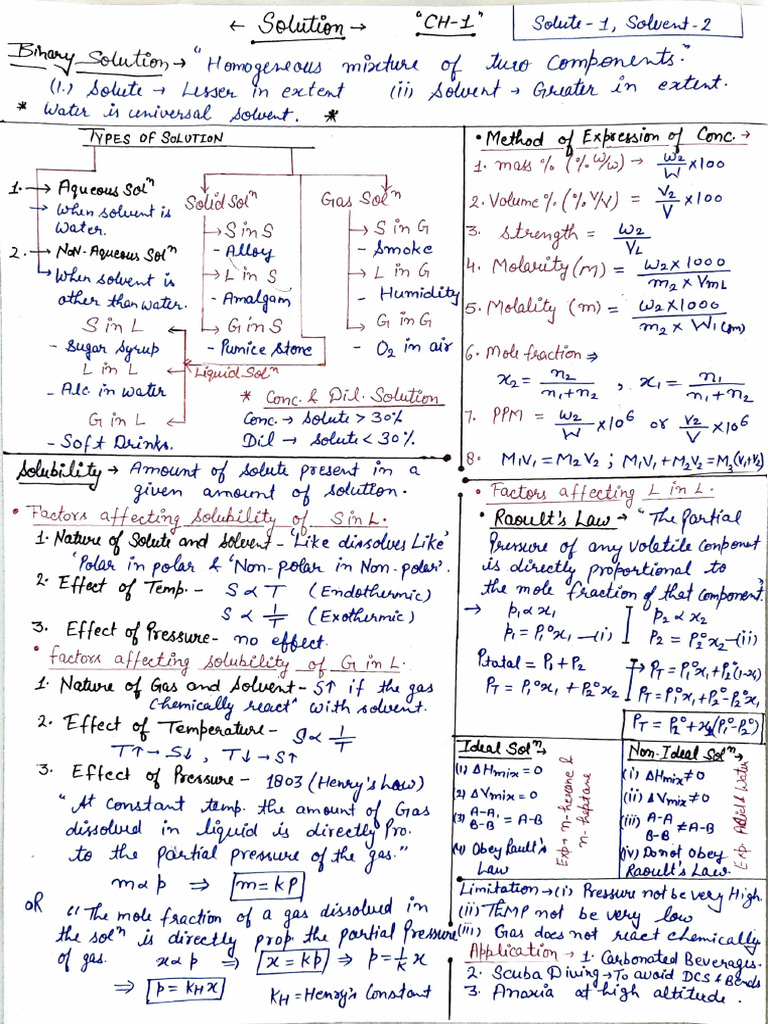 ← Solution → "CH-1"
Solute-1, Solvent-2
Binary Solution → "Homogeneous mixture of two components."
(i.) Solute → Lesser in extent (ii) Solvent → Greater in extent.
* Water is universal solvent. *
TYPES OF SOLUTION
1. → Aqueous Solⁿ
→ When solvent is
water.
2. → Non-Aqueous Solⁿ
→ When solvent is
other than water.
Solid Solⁿ
→ S in S
- Alloy
→ L in S
- Amalgam
→ G in S
- Pumice Stone
Gas Solⁿ
→ S in G
- Smoke
→ L in G
- Humidity
→ G in G
- O₂ in air
Liquid Solⁿ
S in L ←
- Sugar Syrup
L in L ←
- Alc. in water
G in L ←
- Soft Drinks.
* Conc. & Dil. Solution
Conc. → Solute > 30%
Dil → Solute < 30%.
• Method of Expression of Conc. →
1. mass % (% w/w) → w₂/W × 100
2. Volume % (% V/V) = v₂/V × 100
3. Strength = w₂/VL
4. Molarity (M) = w₂ × 1000 / m₂ × VmL
5. Molality (m) = w₂ × 1000 / m₂ × W₁(gm)
6. Mole fraction ⇒
x₂ = n₂/n₁+n₂ , x₁ = n₁/n₁+n₂
7. PPM = w₂/W × 10⁶ or v₂/V × 10⁶
8. M₁V₁ = M₂V₂ ; M₁V₁ + M₂V₂ = M₃(V₁+V₂)
Solubility → Amount of solute present in a
given amount of solution.
• Factors affecting solubility of S in L.
1. Nature of Solute and Solvent - 'Like dissolves Like'
'Polar in polar & 'Non-polar in Non-polar'.
2. Effect of Temp. - S ∝ T (Endothermic)
S ∝ 1/T (Exothermic)
3. Effect of Pressure - no effect.
• factors affecting solubility of G in L.
1. Nature of Gas and Solvent - S↑ if the gas
"Chemically react" with solvent.
2. Effect of Temperature - S ∝ 1/T
T↑ → S↓ , T↓ → S↑
3. Effect of Pressure - 1803 (Henry's Law)
"At constant temp. the amount of Gas
dissolved in liquid is directly Pro.
to the partial pressure of the gas."
m ∝ p ⇒ m = kp
OR "The mole fraction of a gas dissolved in
the solⁿ is directly prop. the partial Pressure
of gas. x ∝ p ⇒ x = kp ⇒ p = 1/k x
⇒ p = KH x KH = Henry's Constant
• Factors affecting L in L.
• Raoult's Law → "The Partial
Pressure of any volatile component
is directly proportional to
the mole fraction of that component."
→ p₁ ∝ x₁
p₁ = P₁° x₁ —(i)
p₂ ∝ x₂
P₂ = P₂° x₂ —(ii)
Ptotal = P₁ + P₂
PT = P₁° x₁ + P₂° x₂
→ PT = P₁° x₁ + P₂° (1-x₁)
PT = P₁° x₁ + P₂° - P₂° x₁
PT = P₂° + x₁(P₁° - P₂°)
Ideal Solⁿ →
(1) ΔHmix = 0
2) ΔVmix = 0
(3) A-A, B-B = A-B
(4) Obey Rault's
Law
Exp → n-hexane &
n-heptane
Non-Ideal Solⁿ →
(i) ΔHmix ≠ 0
(ii) ΔVmix ≠ 0
(iii) A-A B-B ≠ A-B
(iv) Do not Obey
Raoult's Law.
Limitation → (i) Pressure not be very High.
(ii) TEMP not be very low
(iii) Gas does not react chemically
Application → 1. Carbonated Beverages.
2. Scuba Diving → To avoid DCS & Bends
3. Anoxia at high altitude.